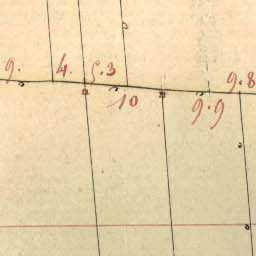 9. 4. 5.3 9.8
10 9.9